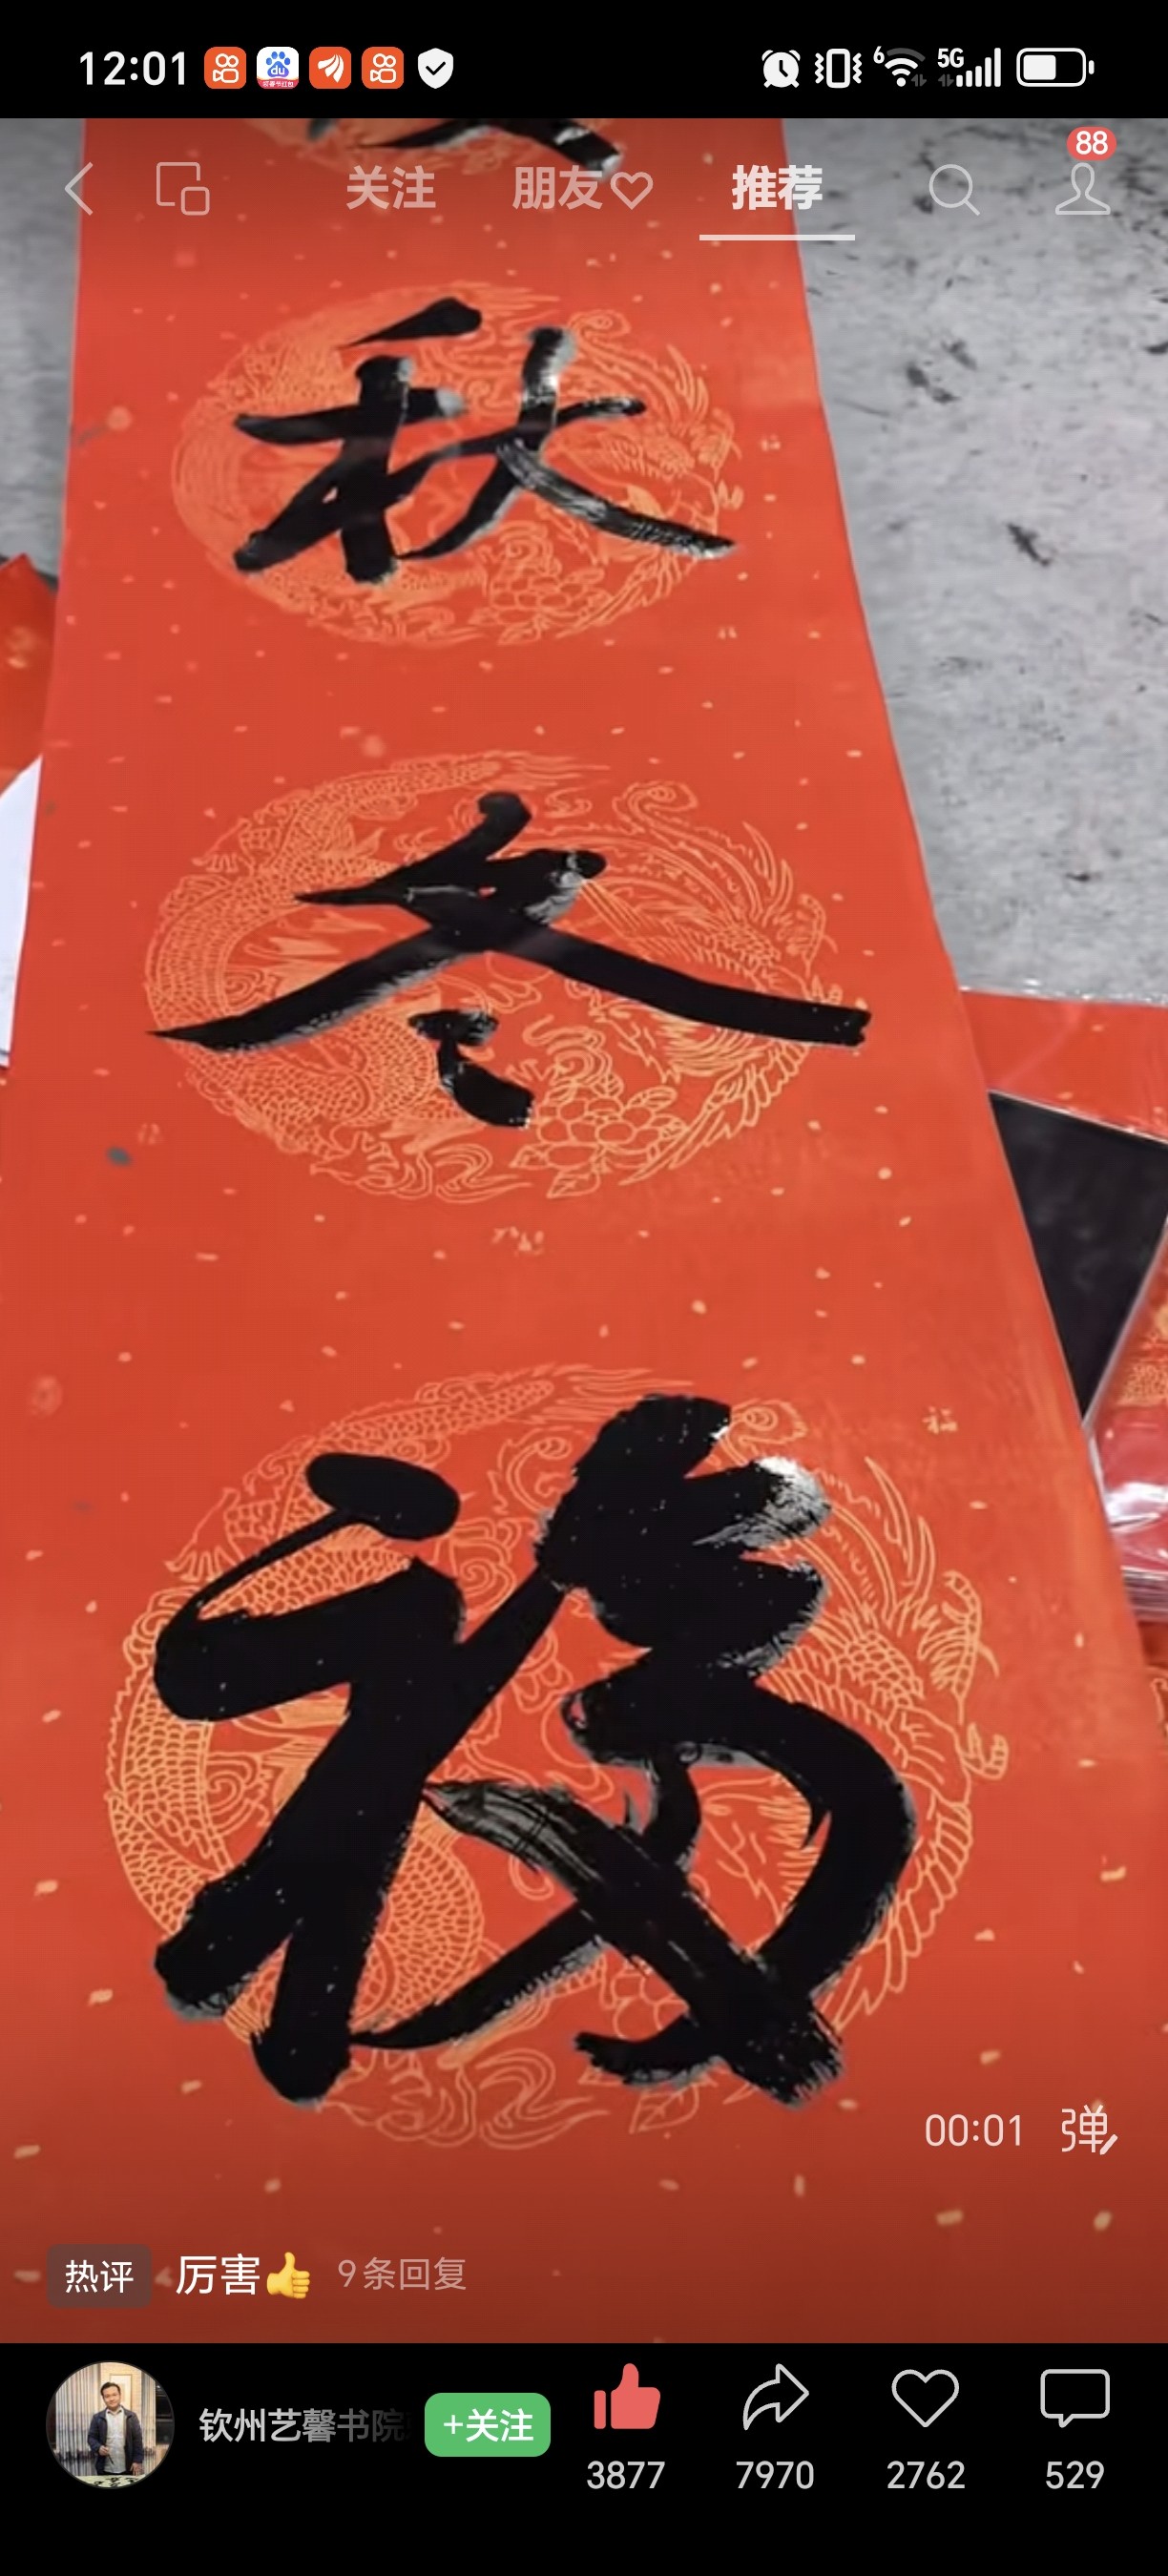 12:01
5G
6
88
关注 朋友 推荐
秋
冬
福
00:01 弹
热评 厉害👍 9条回复
钦州艺馨书院
+关注
3877 7970 2762 529